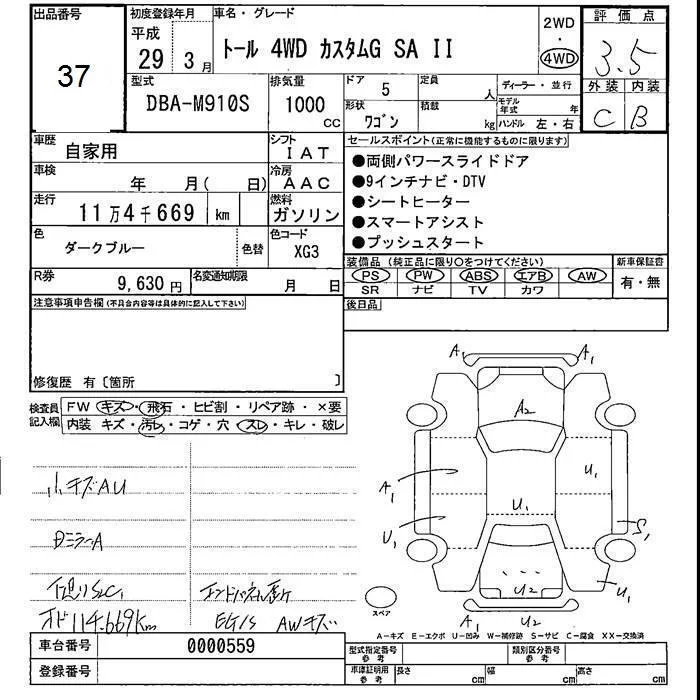 出品番号
37
初度登録年月
平成
29 3月
車名・グレード
トール 4WD カスタムG SA II
2WD
・
4WD
評価点
3.5
外装 内装
C B
型式
DBA-M910S
排気量
1000
cc
ドア 5
定員 人
形状
ワゴン
積載 kg
ディーラー・並行
モデル年式 年
ハンドル 左・右
車歴
自家用
シフト
IAT
車検
年 月( 日)
冷房
AAC
走行
11万4千669 km
燃料
ガソリン
色
ダークブルー
色替
色コード
XG3
R券
9,630円
名変通知期限
月 日
セールスポイント(正常に機能するものに限ります)
●両側パワースライドドア
●9インチナビ・DTV
●シートヒーター
●スマートアシスト
●プッシュスタート
装備品(純正品に限り○をつけてください)
新車保証書
PS PW ABS エアB AW
SR ナビ TV カワ
有・無
後日品
注意事項申告欄(不具合内容等は具体的に記入して下さい)
修復歴 有〔箇所 〕
検査員記入欄
FW キズ・飛石・ヒビ割・リペア跡・×要
内装 キズ・汚レ・コゲ・穴・スレ・キレ・破レ
小キズAU
DミラーA
下廻りSC1
オド114.669km
EG/S AWキズ
A1
A2
A1
U1
U1
U1
U1
S1
U2
U1
A1
U2
スペア
A-キズ E-エクボ U-凹み W-補修跡 S-サビ C-腐食 XX-交換済
車台番号
0000559
登録番号
型式指定番号
参考
類別区分番号
参考
車庫証明用
参考
長さ cm
幅 cm
高さ cm